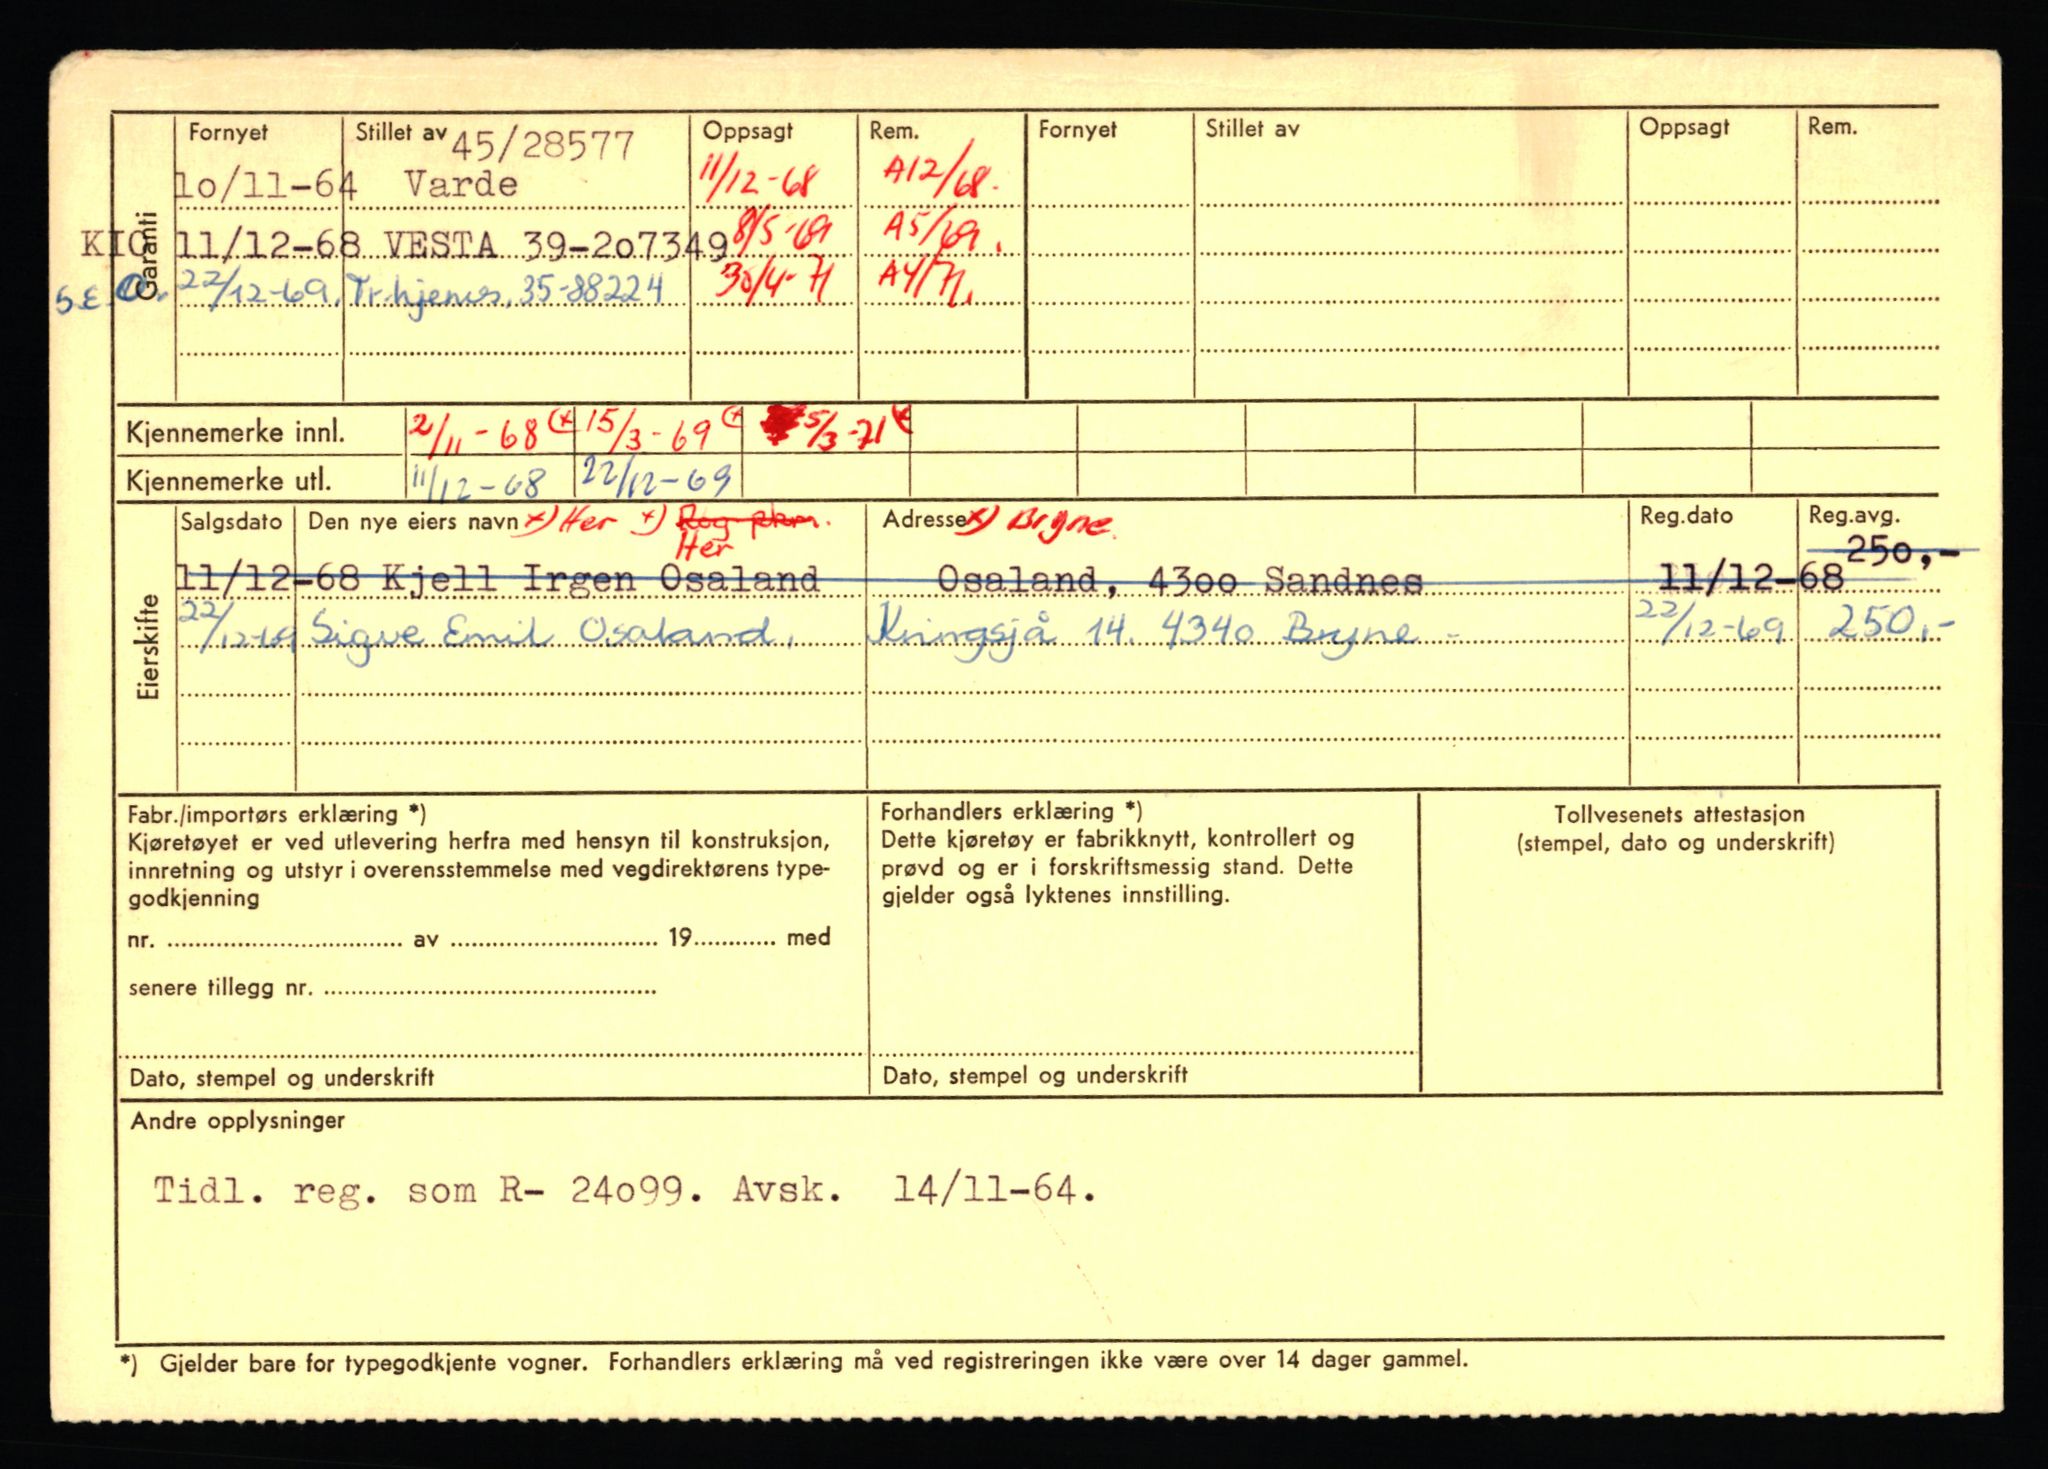 Garanti
Fornyet Stillet av 45/28577 Oppsagt Rem. Fornyet Stillet av Oppsagt Rem.
1o/11-64 Varde 11/12-68 A12/68.
KIO 11/12-68 VESTA 39-2o7349 8/5-69 A5/69.
S.E.O. 22/12-69. Tr.hjemes. 35-88224 30/4-71 A4/71.
Kjennemerke innl. 2/11-68 (x 15/3-69 (x 5/3-71 (x
Kjennemerke utl. 11/12-68 22/12-69
Eierskifte
Salgsdato Den nye eiers navn x) Her x) Rog pkm. Adresse x) Bryne. Reg.dato Reg.avg.
Her 25o,-
11/12-68 Kjell Irgen Osaland Osaland, 43oo Sandnes 11/12-68
22/12-69 Sigve Emil Osaland. Kringsjå 14. 4340 Bryne - 22/12-69 250,-
Fabr./importørs erklæring *)
Kjøretøyet er ved utlevering herfra med hensyn til konstruksjon,
innretning og utstyr i overensstemmelse med vegdirektørens type-
godkjenning
nr. .............................. av .............................. 19............ med
senere tillegg nr. ..............................
Dato, stempel og underskrift
Forhandlers erklæring *)
Dette kjøretøy er fabrikknytt, kontrollert og
prøvd og er i forskriftsmessig stand. Dette
gjelder også lyktenes innstilling.
Dato, stempel og underskrift
Tollvesenets attestasjon
(stempel, dato og underskrift)
Andre opplysninger
Tidl. reg. som R- 24o99. Avsk. 14/11-64.
*) Gjelder bare for typegodkjente vogner. Forhandlers erklæring må ved registreringen ikke være over 14 dager gammel.